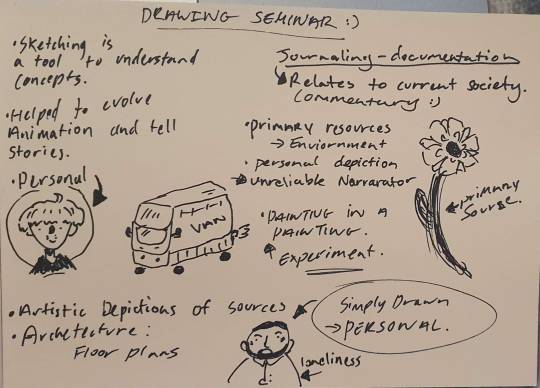 DRAWING SEMINAR :)
• Sketching is
a tool to understand
concepts.
• Helped to evolve
Animation and tell
Stories.
• Personal
VAN
• Artistic Depictions of sources
• Archetecture:
Floor plans
Journaling - documentation
Relates to current society.
Commentary :)
• primary resources
→ Enviornment
• personal depiction
→ unreliable Narrarator
• PAINTING in a
PAINTING.
Experiment.
primary
Sourse.
Simply Drawn
→ PERSONAL.
loneliness